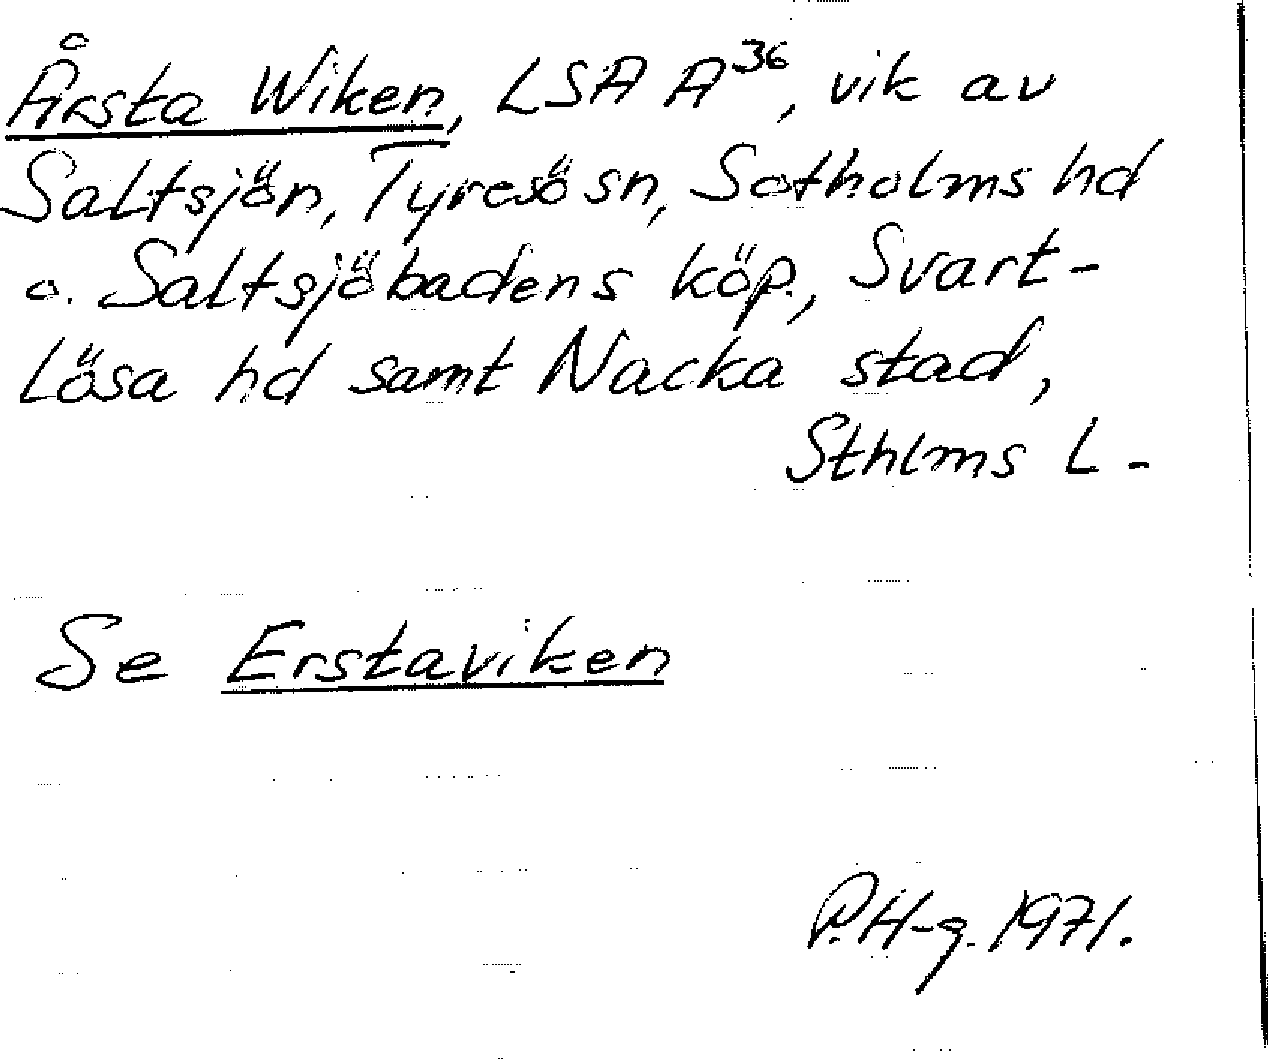 Årsta Wiken, LSA A36, vik av
Saltsjön, Tyresö sn, Sotholms hd
o. Saltsjöbadens köp., Svart-
lösa hd samt Nacka stad,
Sthlms L -
Se Erstaviken
P.H-g. 1971.